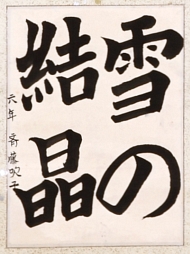 雪の
結晶
六年 斉藤